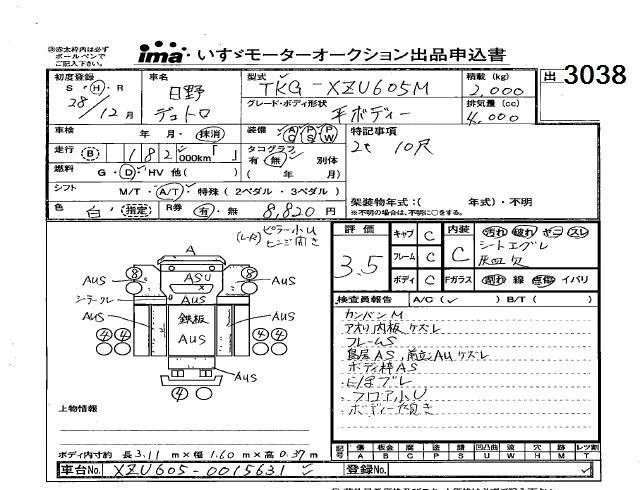 ㊟赤太枠内は必ず
ボールペンで
ご記入下さい。
ima・いすゞモーターオークション出品申込書
出 3038
初度登録 S・H・R 28/12月
車名 日野 デュトロ
型式 TKG-XZU605M
積載(kg) 2,000
グレード・ボディ形状 平ボディー
排気量(cc) 4,000
車検 年・月・抹消
装備 A/C P/S P/W
特記事項
2t 10尺
走行 B 182,000km「 」
タコグラフ 有 無 別体
( 年 月)
燃料 G・D・HV 他( )
シフト M/T・A/T・特殊(2ペダル・3ペダル)
架装物年式:( 年式)・不明
※不明の場合は、不明に○をする。
色 白 指定 R券 有・無 8,820円
(L-R) ピラー小U
ヒンジ開き
評価 3.5
キャブ C
フレーム C
ボディ C
内装 C
汚れ 破れ ヤニ スレ
シートエグレ
灰皿欠
Fガラス 割れ 線 点傷 イバリ
A
⑧ AUS AUS ⑧
ASU
X
シーラークレ AUS
AUS 鉄板 AUS
AUS
④ ④ ④ ④
AUS
④
検査員報告 A/C(✓) B/T( )
カンバンM
アオリ内板ケズレ
フレームS
鳥居AS,前立AUケズレ
ボディ枠AS
フロア小U
上物情報
ボディ内寸約 長3.11m×幅1.60m×高0.37m
記号 傷A 板金B 腐C 塗P 錆S 凹凸曲U 波W 穴H 跡M レンズ割T
車台No. XZU605-0015631
登録No.